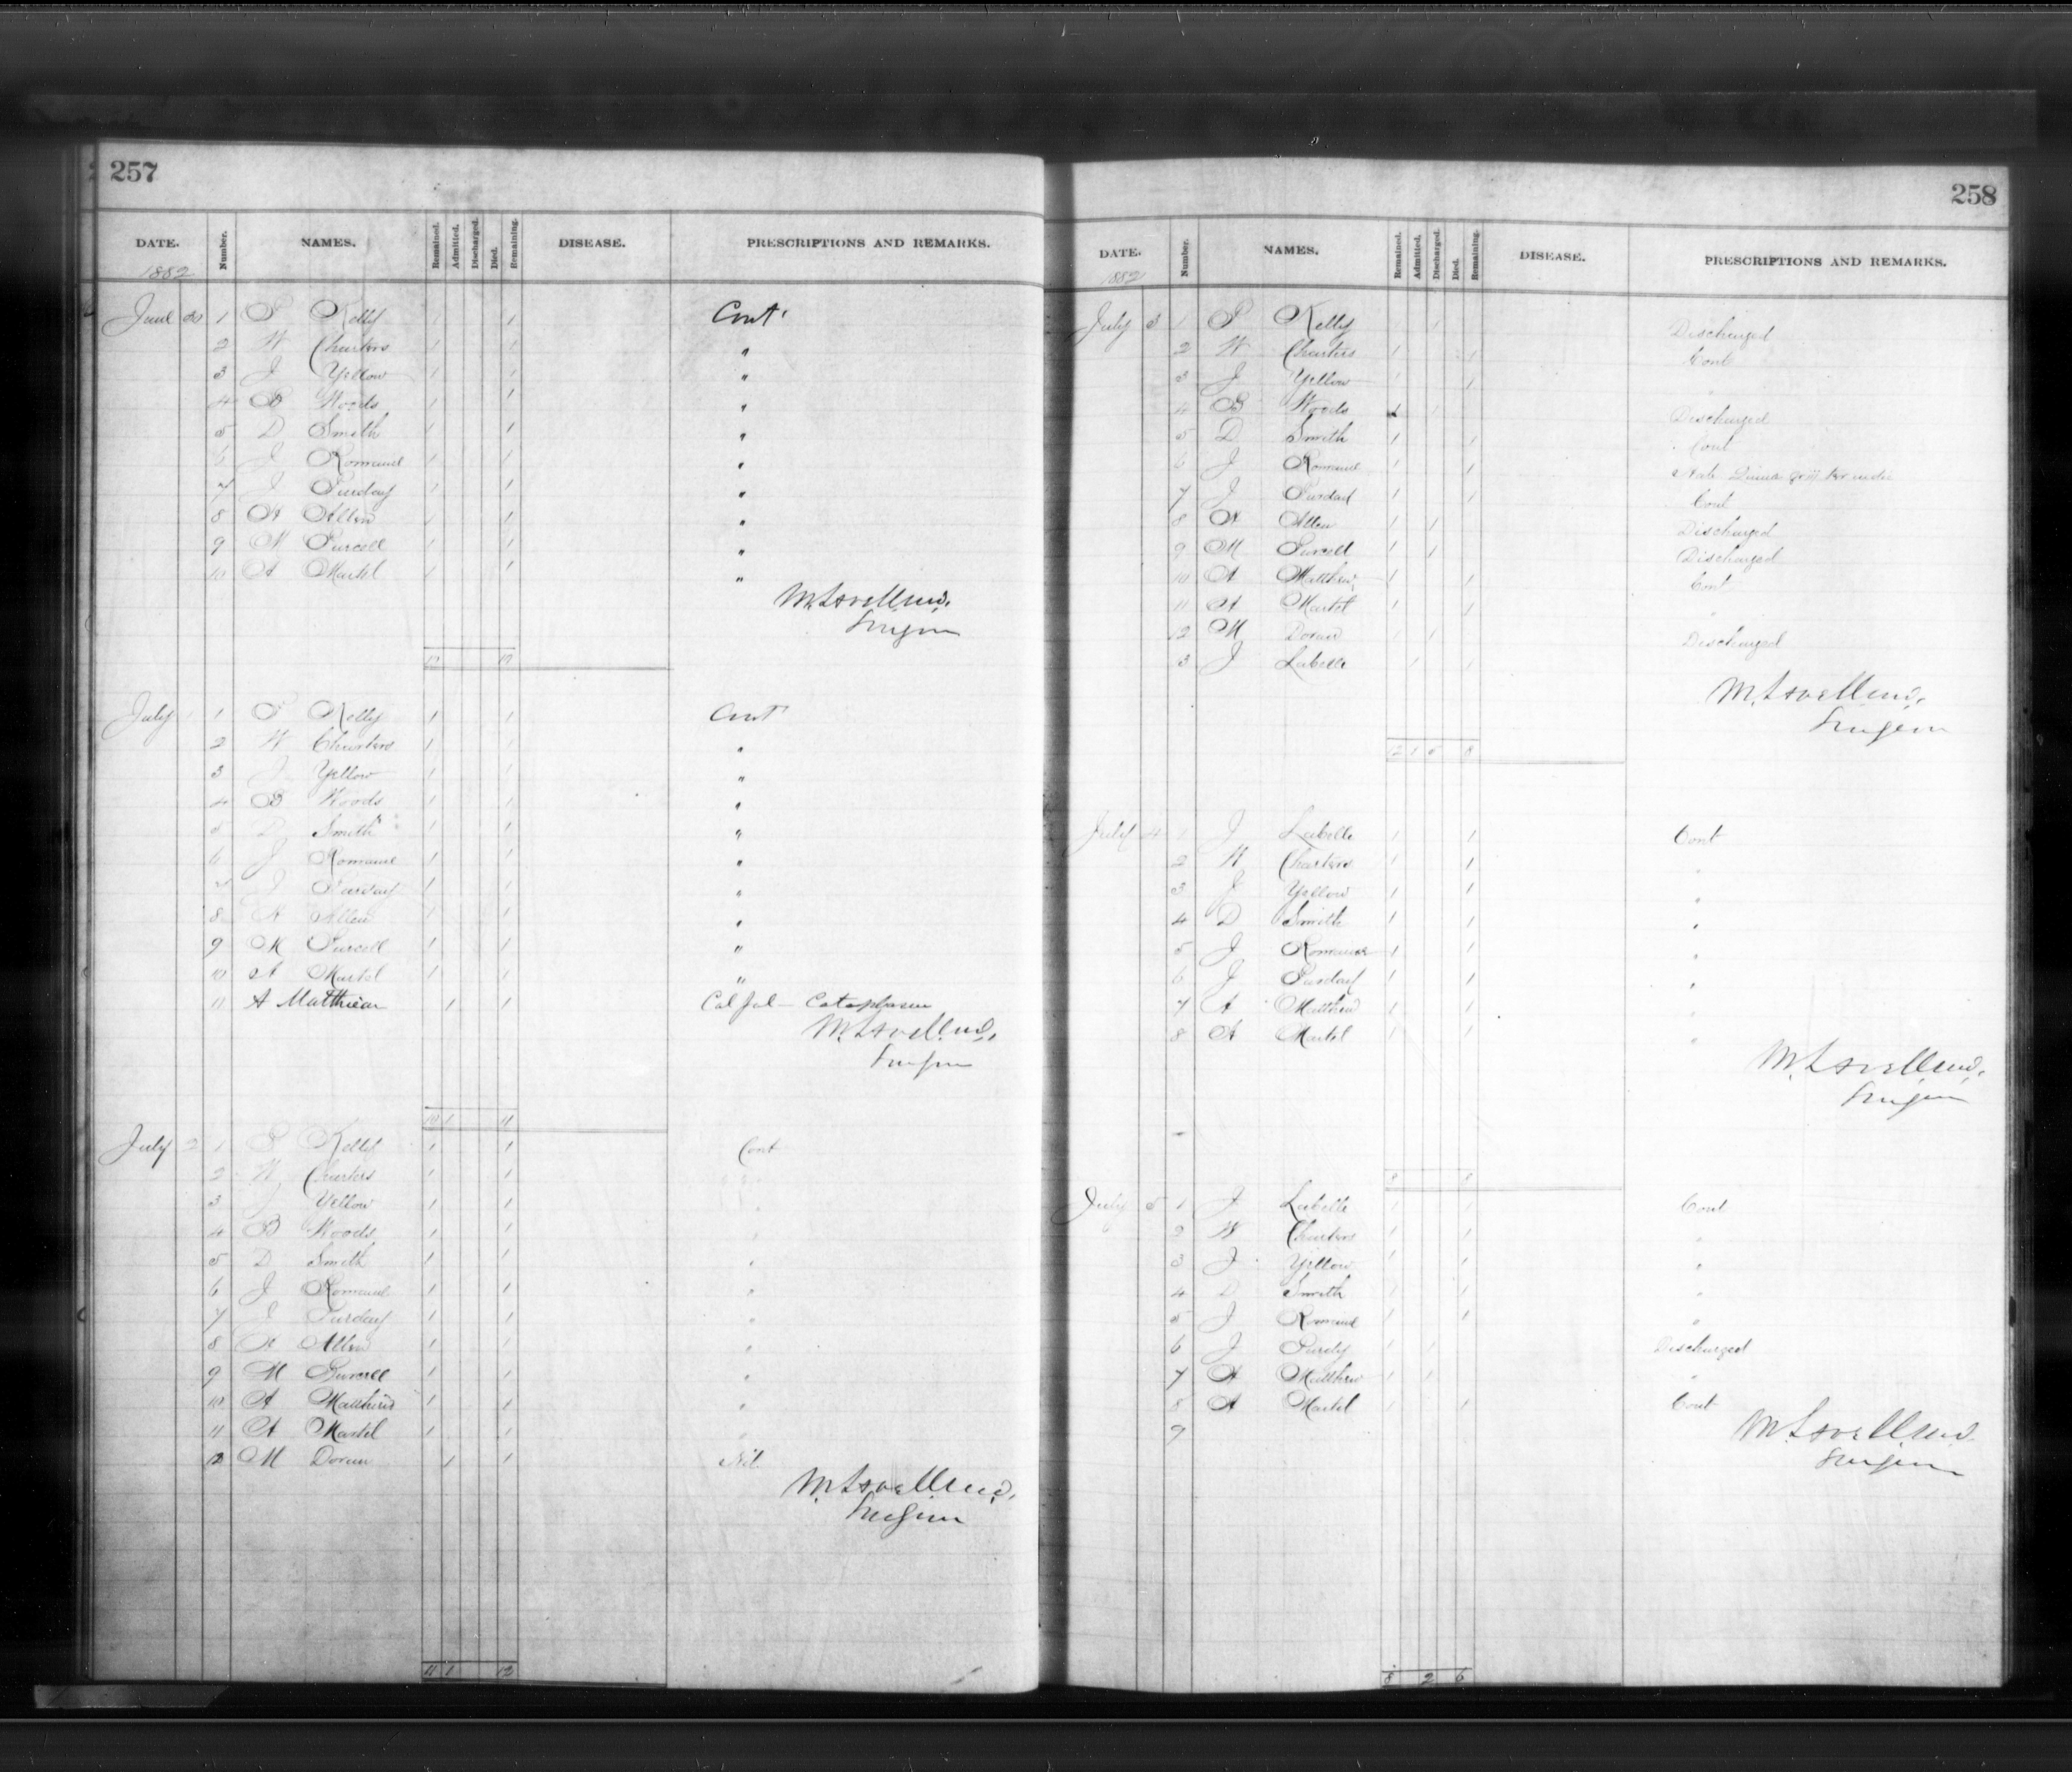 257
DATE. Number. NAMES. Remained. Admitted. Discharged. Died. Remaining. DISEASE. PRESCRIPTIONS AND REMARKS.
1882
June 30 1 P Kelly 1 1 Cont.
2 W Charters 1 1 "
3 J Yellow 1 1 "
4 B Woods 1 1 "
5 D Smith 1 1 "
6 J Romaine 1 1 "
7 J Purday 1 1 "
8 A Allen 1 1 "
9 M Purcell 1 1 "
10 A Martel 1 1 "
M. Lavell M.D.
Surgeon
10 10
July 1 1 P Kelly 1 1 Cont
2 W Charters 1 1 "
3 J Yellow 1 1 "
4 B Woods 1 1 "
5 D Smith 1 1 "
6 J Romaine 1 1 "
7 J Purday 1 1 "
8 A Allen 1 1 "
9 M Purcell 1 1 "
10 A Martel 1 1 "
11 A Matthieu 1 1 Cal Jal - Cataplasm
M. Lavell M.D.
Surgeon
10 1 11
July 2 1 P Kelly 1 1 Cont
2 W Charters 1 1 "
3 J Yellow 1 1 "
4 B Woods 1 1 "
5 D Smith 1 1 "
6 J Romaine 1 1 "
7 J Purday 1 1 "
8 A Allen 1 1 "
9 M Purcell 1 1 "
10 A Matthew 1 1 "
11 A Martel 1 1 "
12 M Doran 1 1 Nil
M. Lavell M.D.
Surgeon
11 1 12
258
DATE. Number. NAMES. Remained. Admitted. Discharged. Died. Remaining. DISEASE. PRESCRIPTIONS AND REMARKS.
1882
July 3 1 P Kelly 1 1 Discharged
2 W Charters 1 1 Cont
3 J Yellow 1 1 "
4 B Woods 1 1 Discharged
5 D Smith 1 1 Cont
6 J Romaine 1 1
7 J Purday 1 1 Cont
8 A Allen 1 1 Discharged
9 M Purcell 1 1 Discharged
10 A Matthew 1 1 Cont
11 A Martel 1 1 "
12 M Doran 1 1 Discharged
3 J Labelle 1 1
M. Lavell M.D.
Surgeon
12 1 5 8
July 4 1 J Labelle 1 1 Cont
2 W Charters 1 1 "
3 J Yellow 1 1 "
4 D Smith 1 1 "
5 J Romaine 1 1 "
6 J Purday 1 1 "
7 A Matthew 1 1 "
8 A Martel 1 1 "
M. Lavell M.D.
Surgeon
8 8
July 5 1 J Labelle 1 1 Cont
2 W Charters 1 1 "
3 J Yellow 1 1 "
4 D Smith 1 1 "
5 J Romaine 1 1 "
6 J Purdy 1 1 Discharged
7 A Matthew 1 1 "
8 A Martel 1 1 Cont
9
M. Lavell M.D.
Surgeon
8 2 6